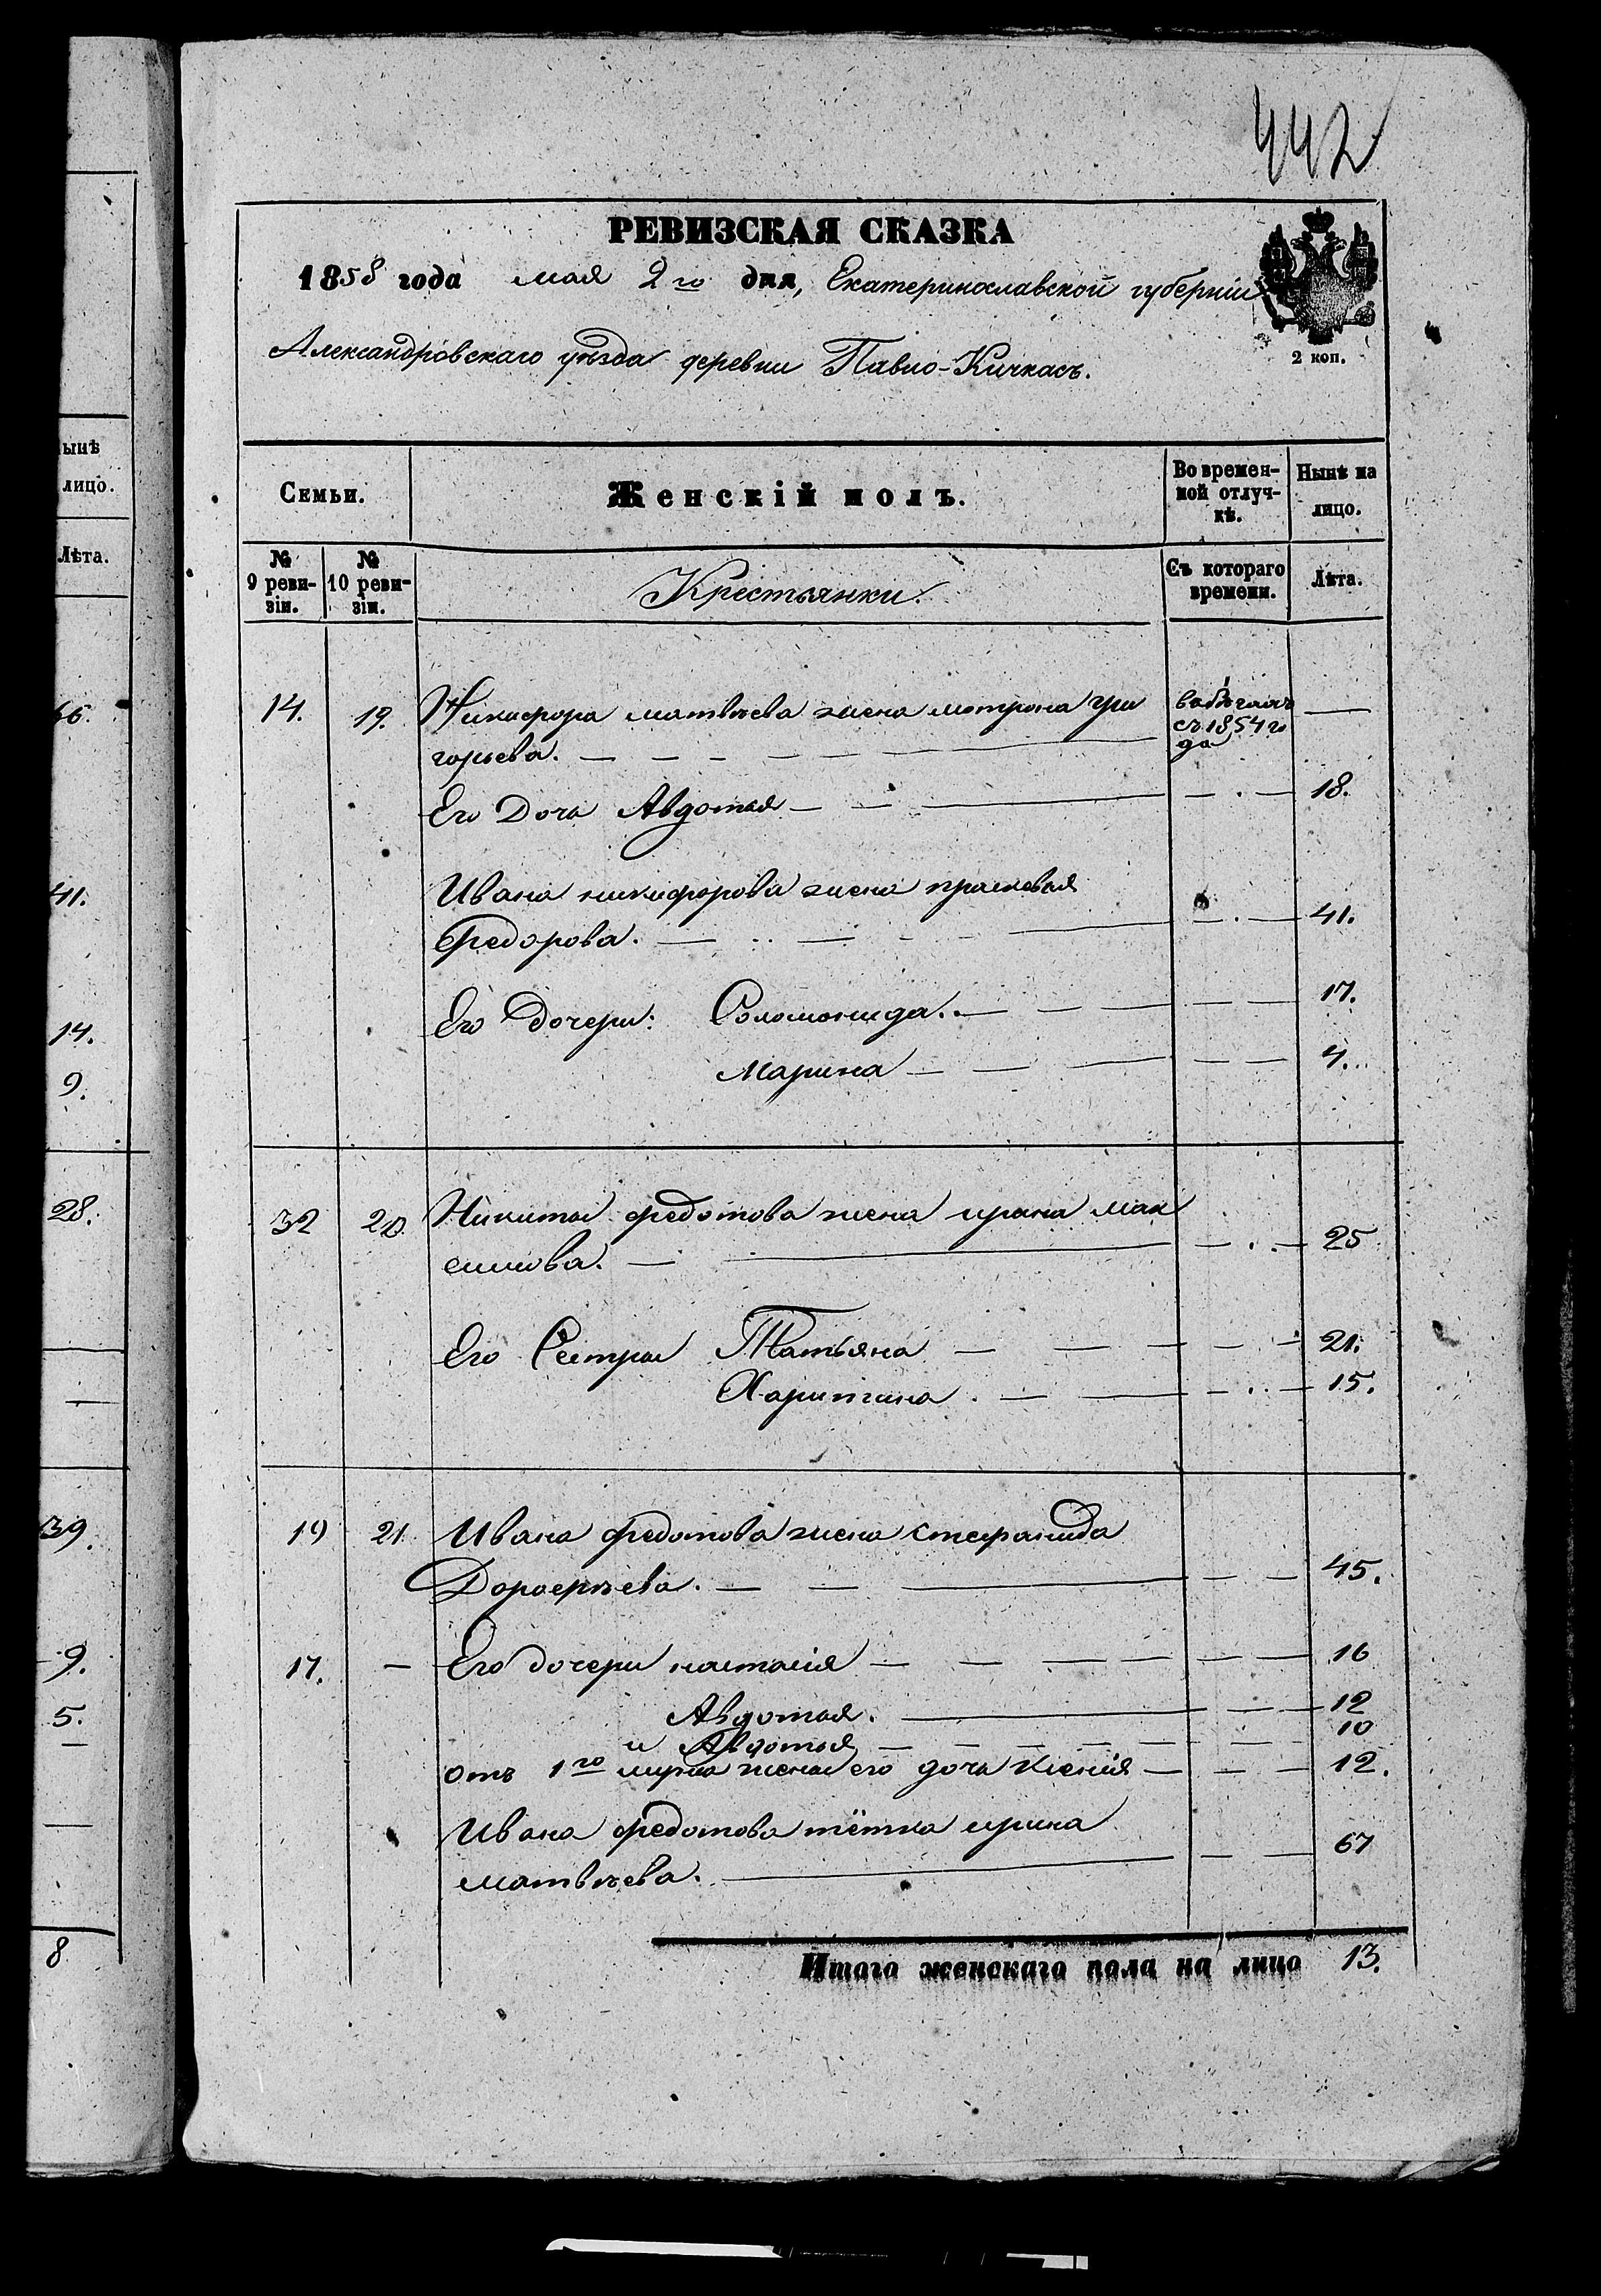 442
РЕВИЗСКАЯ СКАЗКА
1858 года мая 2го дня, Екатеринославской губерніи
2 коп.
Александровскаго уѣзда деревни Павло-Кичкасъ.
ынѣ
лицо.
Лѣта.
Семьи.
Женскій полъ.
Во времен-
ной отлуч-
кѣ.
Нынѣ на
лицо.
№
9 реви-
зіи.
№
10 реви-
зіи.
Крестьянки.
Съ котораго
времени.
Лѣта.
14. 19. Никифора матвѣева жена мотрона гри
горьева. — — — — —
въ бѣгахъ
съ 1854 го
да
—
Его Дочь Авдотья — — — 18.
Ивана никифорова жена прасковья
Федорова. — — — 41.
Его дочери: Соломонида. — — — 17.
Марина — — — 4.
32 20. Никиты федотова жена ирина мак
симова. — — 25
Его Сестры Татьяна — — — 21.
Харитина. — — — 15.
19 21. Ивана федотова жена степанида
Дорофѣева. — — — 45.
17. — Его дочери настасія — — — 16
Авдотья. — — — 12
и Авдотья — — — 10
отъ 1го мужа жены его дочь Ксенія — — — 12.
Ивана федотова тётка ирина
матвѣева. — — — 67
Итого женскаго пола на лицо 13.
41.
14.
9.
28.
39.
9.
5.
8